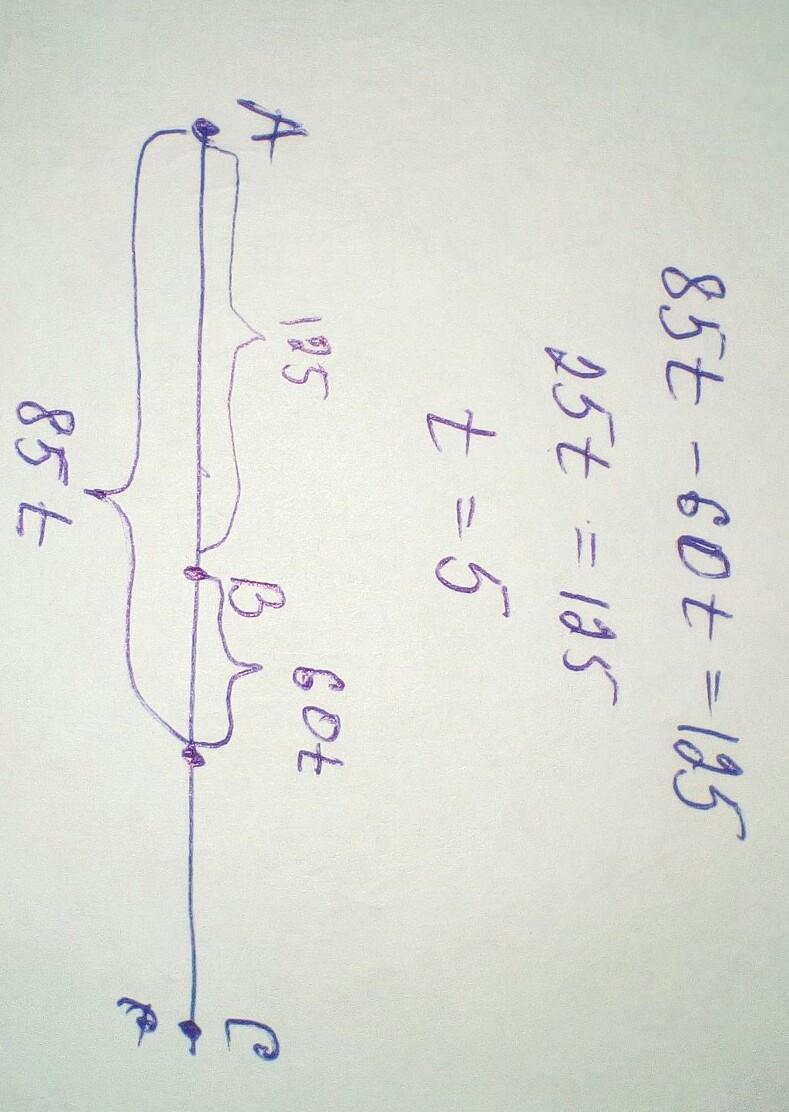 85t - 60t = 125
25t = 125
t = 5
125 60t
A B C
85t